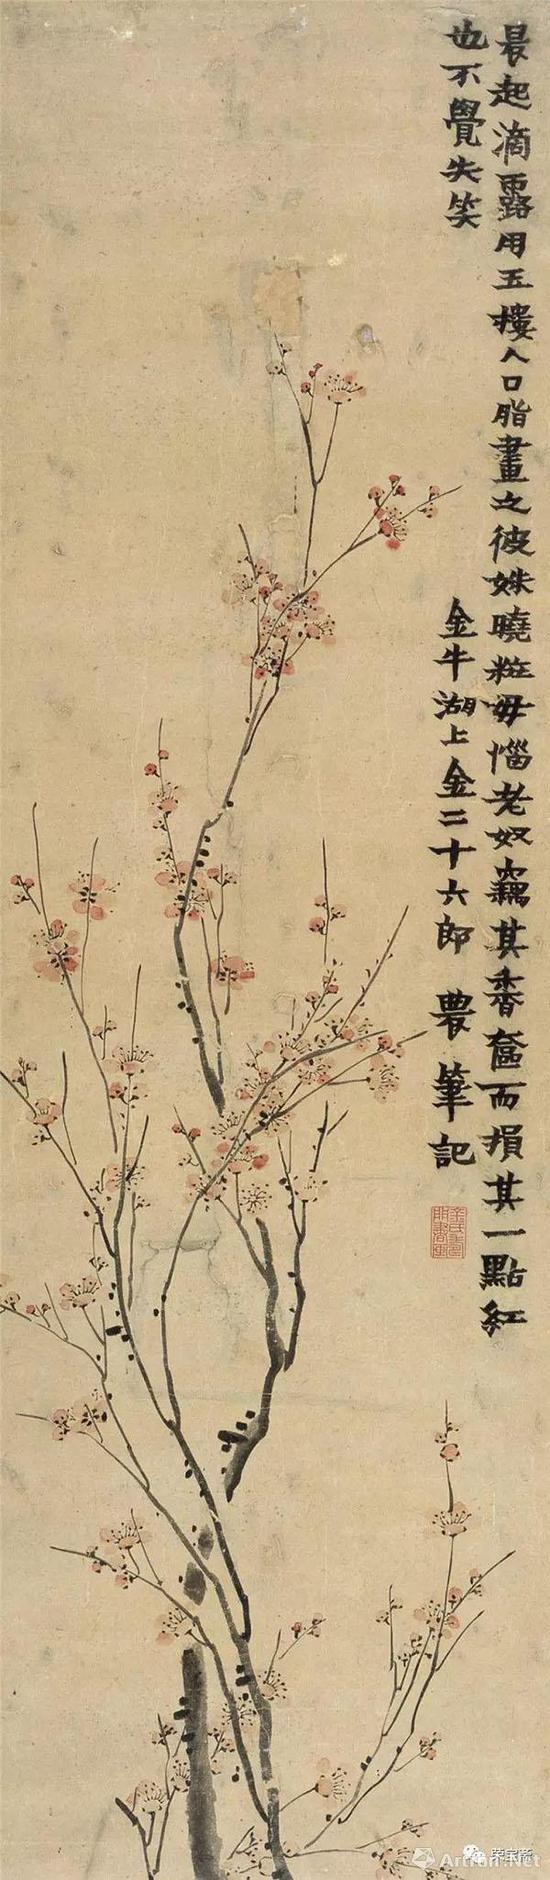 晨起滴露用五樓人口脂畫之彼姝曉粧毋惱老奴竊其香奩而損其一點紅
也不覺失笑
金牛湖上金二十六郎 農筆記
荣宝斋
Artron.Net